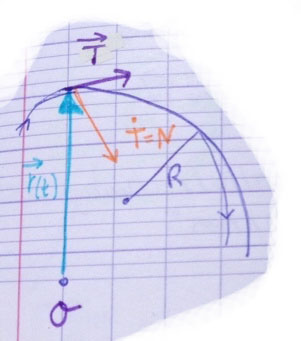 T
Ṫ=N
r(t)
R
O